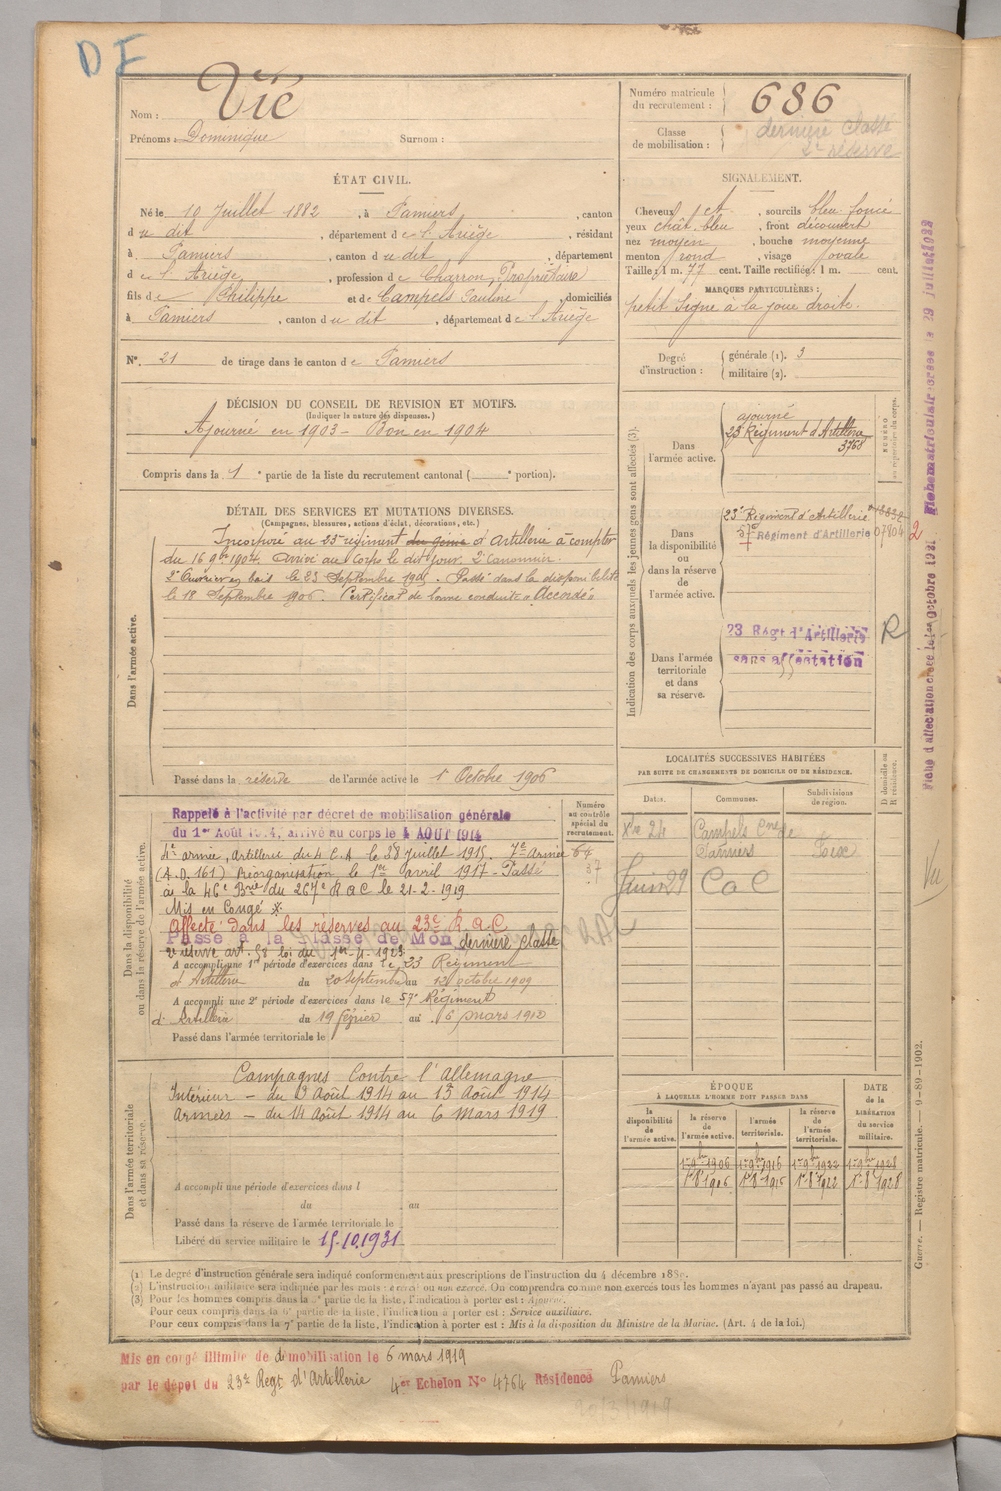 DF
Nom : Vié
Prénoms : Dominique Surnom :
Numéro matricule du recrutement : 686
Classe de mobilisation : dernière classe
2e réserve
ÉTAT CIVIL.
Né le 10 Juillet 1882, à Pamiers, canton
du dit, département de l'Ariège, résidant
à Pamiers, canton du dit, département
de l'Ariège, profession de Charron, Propriétaire
fils de Philippe et de Campels Pauline, domiciliés
à Pamiers, canton du dit, département de l'Ariège
N° 21 de tirage dans le canton de Pamiers
SIGNALEMENT.
Cheveux chât, sourcils bleu foncé
yeux chât. bleu, front découvert
nez moyen, bouche moyenne
menton rond, visage ovale
Taille : 1 m. 77 cent. Taille rectifiée : 1 m. cent.
MARQUES PARTICULIÈRES :
petit signe à la joue droite.
Degré d'instruction : générale (1). 3
militaire (2).
DÉCISION DU CONSEIL DE REVISION ET MOTIFS.
(Indiquer la nature des dispenses.)
Ajourné en 1903 - Bon en 1904
Compris dans la 1e partie de la liste du recrutement cantonal ( e portion).
DÉTAIL DES SERVICES ET MUTATIONS DIVERSES.
(Campagnes, blessures, actions d'éclat, décorations, etc.)
Dans l'armée active.
Incorporé au 23e régiment du génie d'Artillerie à compter
du 16 9bre 1904. Arrivé au Corps le dit jour. 2e Canonnier.
2e Ouvrier en bois le 23 Septembre 1905. Passé dans la disponibilité
le 18 Septembre 1906. Certificat de bonne conduite Accordé
Passé dans la réserve de l'armée active le 1er Octobre 1906
Indication des corps auxquels les jeunes gens sont affectés (3).
NUMÉRO au répertoire du corps.
Dans l'armée active.
ajourné
23e Régiment d'Artillerie
3768
Dans la disponibilité ou dans la réserve de l'armée active.
23e Régiment d'Artillerie
57e Régiment d'Artillerie 07804 2
Dans l'armée territoriale et dans sa réserve.
23 Régt d'Artillerie R
sans affectation
Fiche d'affectation créée le 1er Octobre 1921
Fiche matriculaire créée le 29 juillet 1922
Vu
LOCALITÉS SUCCESSIVES HABITÉES
PAR SUITE DE CHANGEMENTS DE DOMICILE OU DE RÉSIDENCE.
Dates. Communes. Subdivisions de région. D domicile ou R résidence.
Xbre 24 Campels Cne de
Pamiers Foix
Juin 29 CaC
Dans la disponibilité ou dans la réserve de l'armée active.
Numéro au contrôle spécial du recrutement.
Rappelé à l'activité par décret de mobilisation générale
du 1er Août 1914, arrivé au corps le 4 AOUT 1914
4e armée, Artillerie du 4 C.A le 28 Juillet 1915. 7e Armée
(A.D. 161) Réorganisation le 1er avril 1917 - Passé
à la 46e Brie du 267e R a C le 21-2-1919
Mis en Congé
Affecté dans les réserves au 23e R.a.C
Passé à la classe de Mon dernière classe
2e réserve art. 58 loi du 1er-4-1923
A accompli une 1re période d'exercices dans le 23 Régiment
d'Artillerie du 20 septembre au 12 octobre 1909
A accompli une 2e période d'exercices dans le 57e Régiment
d'Artillerie du 19 février au 6 mars 1912
Passé dans l'armée territoriale le
Dans l'armée territoriale et dans sa réserve.
Campagnes Contre l'Allemagne
Intérieur - du 3 Août 1914 au 13 Août 1914
Armées - du 14 Août 1914 au 6 mars 1919
A accompli une période d'exercices dans l
du au
Passé dans la réserve de l'armée territoriale le
Libéré du service militaire le 15.10.1931
ÉPOQUE
À LAQUELLE L'HOMME DOIT PASSER DANS
DATE de la LIBÉRATION du service militaire.
la disponibilité de l'armée active. la réserve de l'armée active. l'armée territoriale. la réserve de l'armée territoriale.
1er 9bre 1906 1er 9bre 1916 1er 9bre 1922 1er 9bre 1928
1er 8bre 1906 1er 8bre 1916 1er 8bre 1922 1er 8bre 1928
Guerre. — Registre matricule. — 9-89-1902.
(1) Le degré d'instruction générale sera indiqué conformément aux prescriptions de l'instruction du 4 décembre 1889.
(2) L'instruction militaire sera indiquée par les mots : exercé ou non exercé. On comprendra comme non exercés tous les hommes n'ayant pas passé au drapeau.
(3) Pour les hommes compris dans la 5e partie de la liste, l'indication à porter est : Ajourné.
Pour ceux compris dans la 6e partie de la liste, l'indication à porter est : Service auxiliaire.
Pour ceux compris dans la 7e partie de la liste, l'indication à porter est : Mis à la disposition du Ministre de la Marine. (Art. 4 de la loi.)
Mis en congé illimité de démobilisation le 6 mars 1919
par le dépôt du 23e Regt d'Artillerie 4er Echelon N° 4764 Résidence Pamiers
20/3/1919